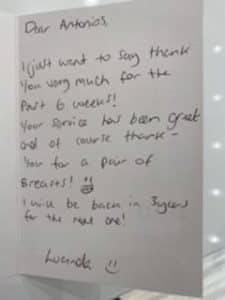 Dear Antonios,
I just want to say thank
you very much for the
Past 6 weeks!
Your service has been great
and of course thank-
You for a pair of
Breasts!
I will be back in 3years
for the next one!
Lucinda